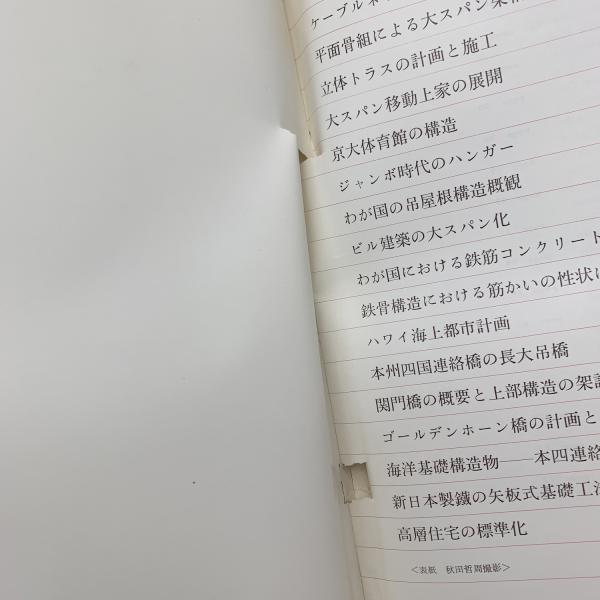 ケーブルネ
平面骨組による大スパン架構
立体トラスの計画と施工
大スパン移動上家の展開
京大体育館の構造
ジャンボ時代のハンガー
わが国の吊屋根構造概観
ビル建築の大スパン化
わが国における鉄筋コンクリート
鉄骨構造における筋かいの性状に
ハワイ海上都市計画
本州四国連絡橋の長大吊橋
関門橋の概要と上部構造の架設
ゴールデンホーン橋の計画と
海洋基礎構造物——本四連絡
新日本製鐵の矢板式基礎工法
高層住宅の標準化
<表紙　秋田哲周撮影>